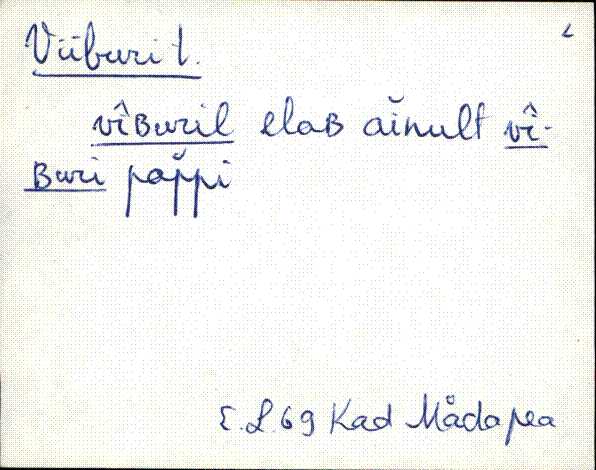 Viiburi t.
L
vîʙuril elaʙ ăinult vî-
ʙuri pap̆pi
E. L. 69 Kad Mådapea